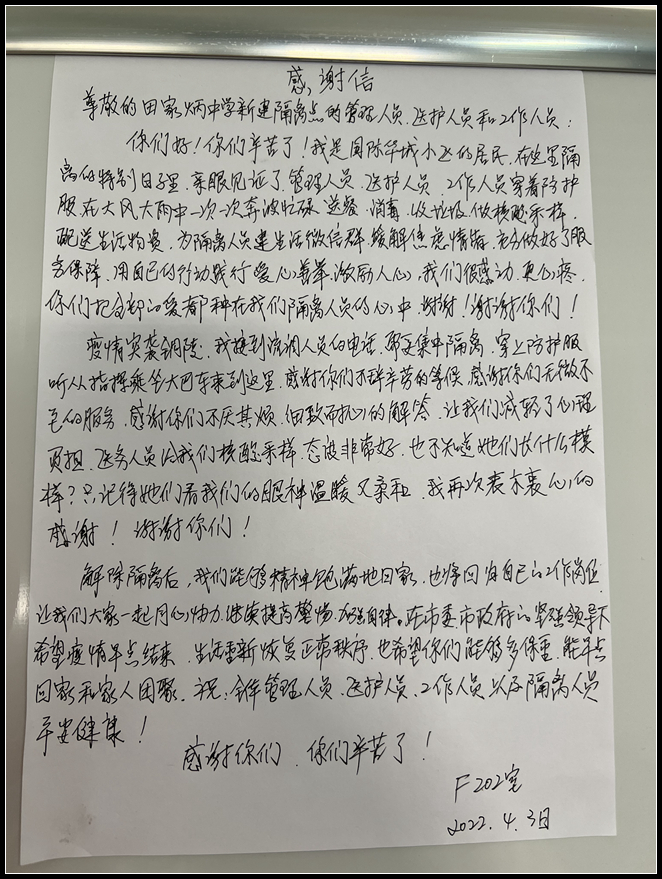 感谢信
尊敬的田家炳中学新建隔离点的管理人员、医护人员和工作人员：
你们好！你们辛苦了！我是国际华城小区的居民，在这里隔
离的特别日子里，亲眼见证了管理人员、医护人员、工作人员穿着防护
服，在大风大雨中一次一次奔波忙碌，送餐、消毒、收垃圾、做核酸采样，
配送生活物资，为隔离人员建生活微信群，缓解焦虑情绪，充分做好了服
务保障，用自己的行动践行爱心善举，激励人心，我们很感动，更心疼，
你们把全部的爱都种在我们隔离人员的心中，谢谢！谢谢你们！
疫情突袭铜陵，我接到流调人员的电话，需要集中隔离，穿上防护服
听从指挥乘坐大巴车来到这里，感谢你们不辞辛苦的等候，感谢你们无微不
至的服务，感谢你们不厌其烦，细致而耐心的解答，让我们减轻了心理
负担，医务人员给我们核酸采样，态度非常好，也不知道她们长什么模
样？只记得她们看我们的眼神温暖又亲和，我再次表示衷心的
感谢！谢谢你们！
解除隔离后，我们能够精神饱满地回家，也将回自己的工作岗位，
让我们大家一起同心协力，继续提高警惕，加强自律。在市委市政府的坚强领导下
希望疫情早点结束，生活重新恢复正常秩序，也希望你们能够多保重，能早点
回家和家人团聚，祝：全体管理人员、医护人员、工作人员以及隔离人员
平安健康！
感谢你们、你们辛苦了！
F202室
2022.4.3日